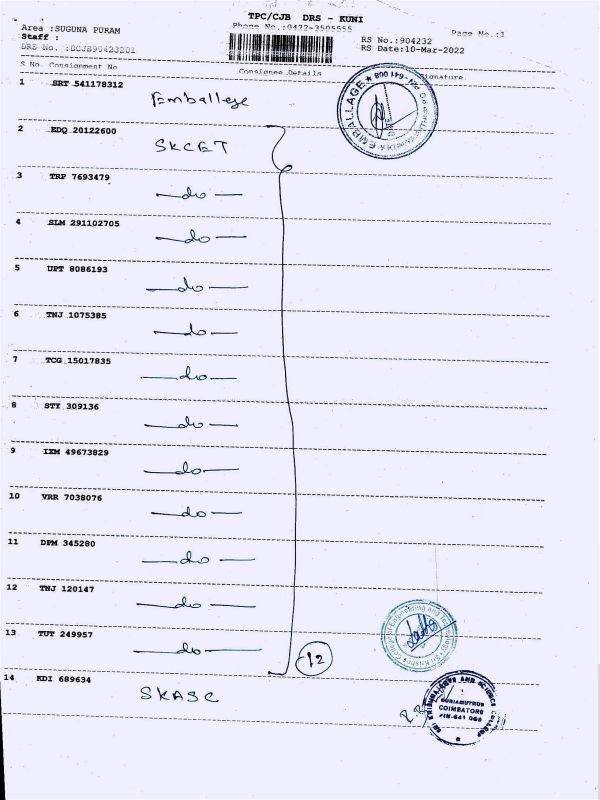 TPC/CJB DRS - KUNI
Phone No.:0422-3505555
Page No.:1
Area :SUGUNA PURAM
Staff :
RS No.:904232
DRS No. :DCJB90423201
RS Date:10-Mar-2022
S No. Consignment No Consignee Details Signature
1 SRT 541178312
Emballege
EMBALLAGE
2 EDQ 20122600
SKCET
3 TRP 7693479
—do—
4 SLM 291102705
—do—
5 UPT 8086193
—do—
6 TNJ 1075385
—do—
7 TCG 15017835
—do—
8 STY 309136
—do—
9 IXM 49673829
—do—
10 VRR 7038076
—do—
11 DPM 345280
—do—
12 TNJ 120147
—do—
13 TUT 249957
—do—
12
14 KDI 689634
SKASC
SRI KRISHNA ARTS AND SCIENCE COLLEGE
KUNIAMUTHUR
COIMBATORE
PIN-641 008